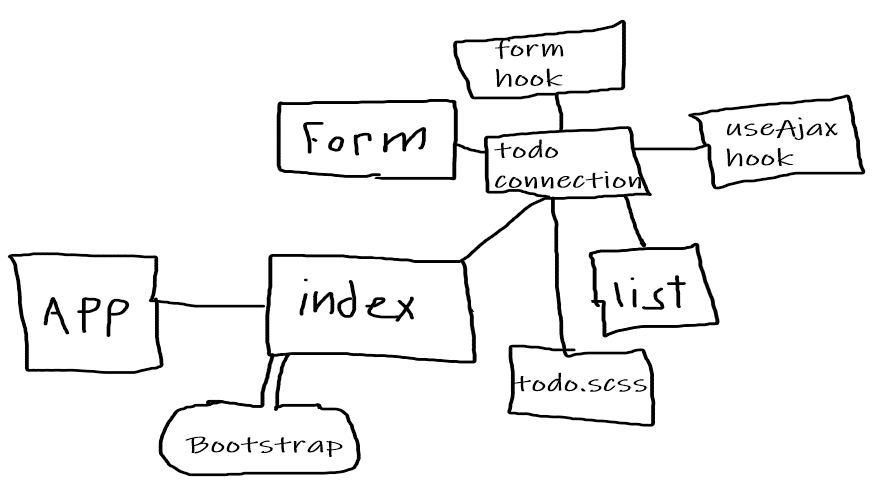 form
hook
Form
todo
connection
useAjax
hook
APP
index
list
todo.scss
Bootstrap